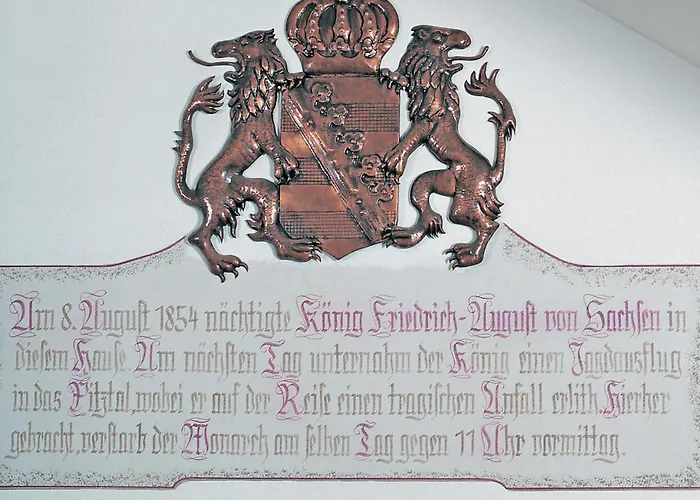 Am 8. August 1854 nächtigte König Friedrich-August von Sachsen in
diesem Hause. Am nächsten Tag unternahm der König einen Jagdausflug
in das Pitztal, wobei er auf der Reise einen tragischen Unfall erlitt. Hierher
gebracht, verstarb der Monarch am selben Tag gegen 11 Uhr vormittag.